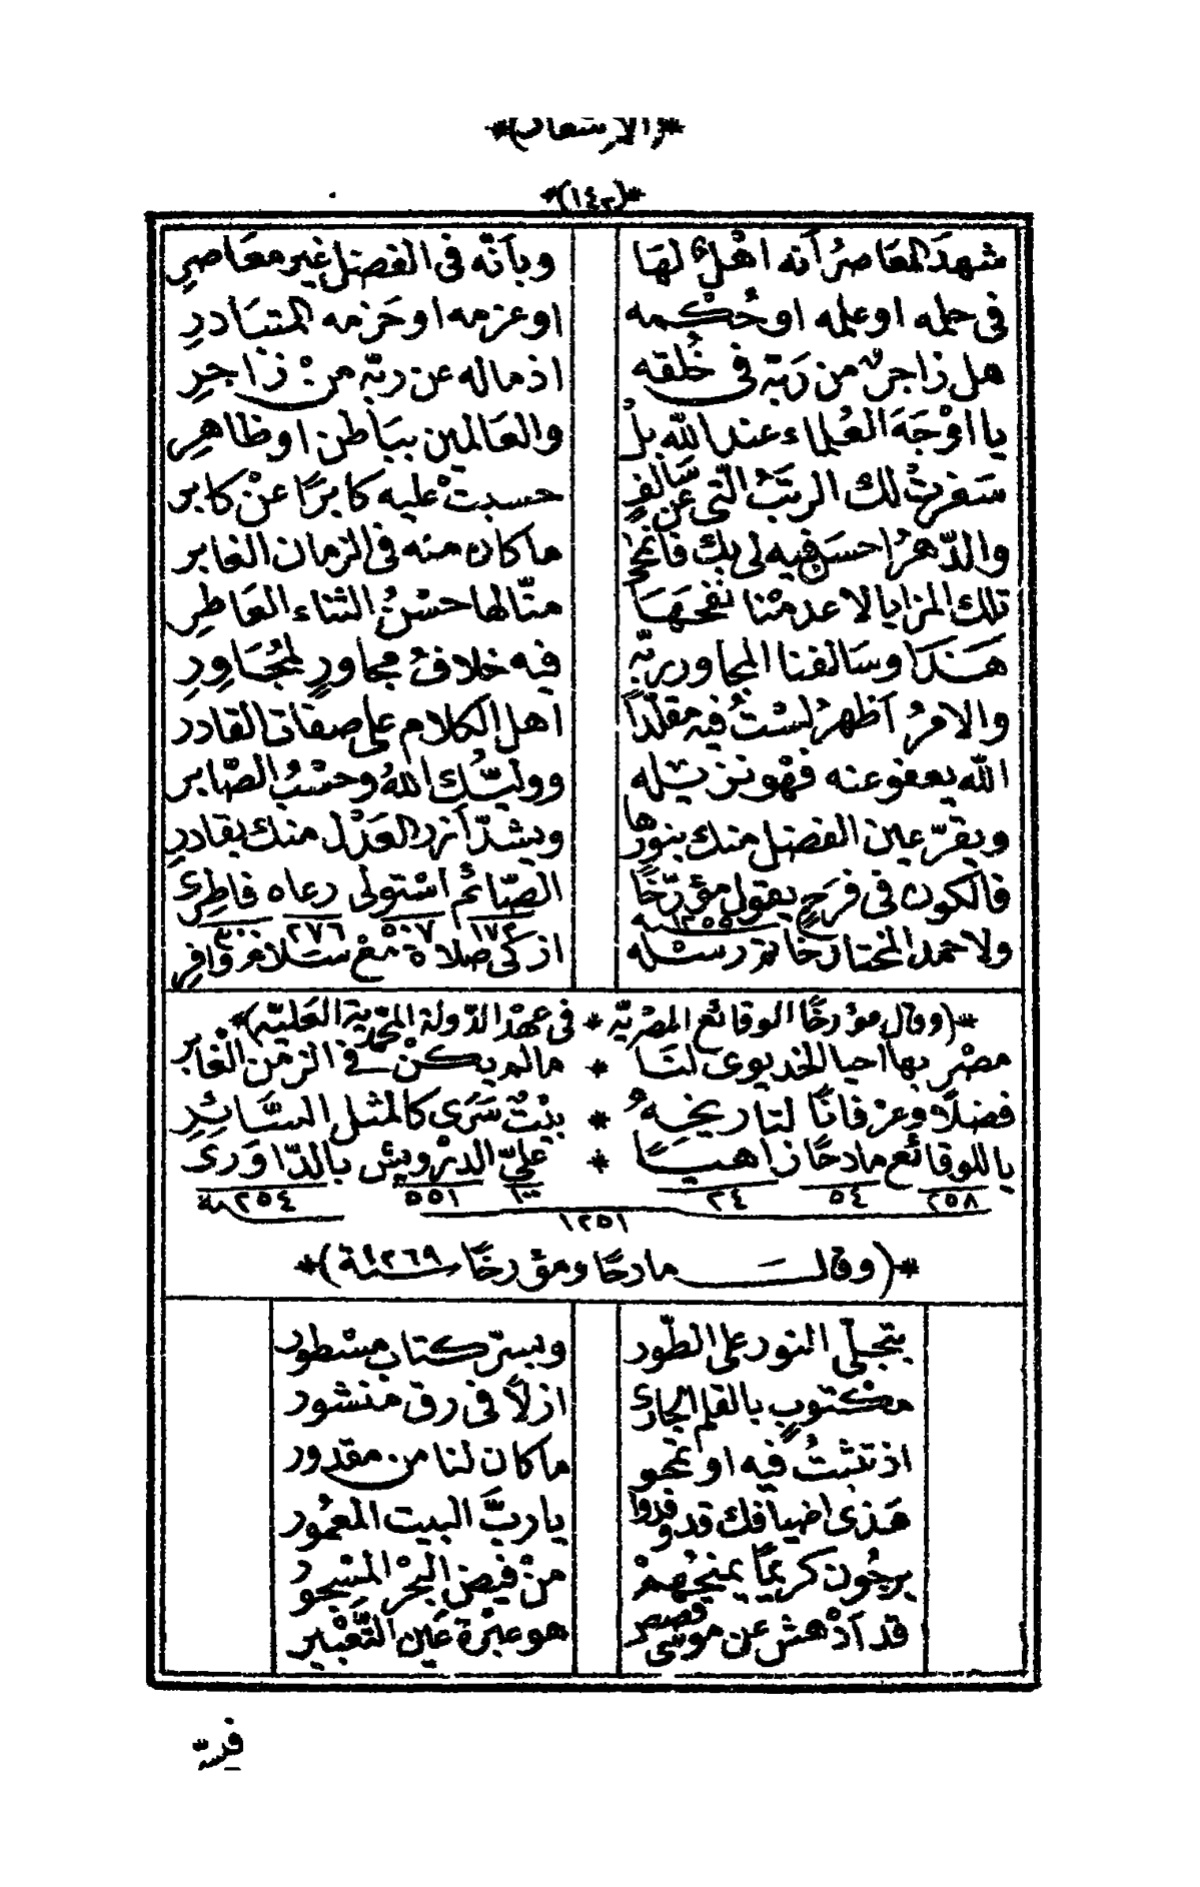 *(الاشعار)*
*(١٤٢)*
شهدَ المعَاصرُ أنه اهْلٌ لهَا وبأنّه فى الفضل غير معَاصرِ
فى حمله اوعلمه اوحُكْمه اوعزمه اوحَزمه المتبَادرِ
هل زاجرٌ من رَبّه فى خُلقه اذماله عن ربّه منْ زاجرِ
يا اوْجَهَ العُلماء عند الله بلْ والعَالمين ببَاطن اوظاهرِ
سَفرتْ لك الرتَبُ الّتى عن سَالفٍ حسبتْ عليه كابرًا عنْ كابر
والدّهرُ احسَن فيه لى بك فانمحَى ماكان منه فى الزمان الغابر
تلك المزايا لاعدمْنا نفحهَا منّالها حسْنُ الثناء العَاطِر
هَذا وسَالفنا المجاور ربّه فيه خلافُ مجاورٍ لمجُاوِرِ
والامرُ أظهرُ لسْتُ فيه مقلّداً أهل الكلام على صفات القادر
الله يعفو عنه فهْو نزيْله ووليّك اللهُ وحسْبُ الصّابر
ويقرّ عين الفضل منك بنورها ويشدّ أزر العَدْل منك بقادرِ
فالكون فى فرَحٍ يقول مؤرّخًا الصّائم استولى رعاه فاطرى
١٢٥٥ ١٧٢ ٥٠٧ ٢٧٦ ٣٠٠
ولاحمد المختار خاتم رسْله ازكى صلاة مَعْ سَلامٍ وَافرِ
*(وقال مؤرخًا الوقائع المصْريّه * فى عهْد الدّولة المحمّدية العَليّه)*
مصْر بها احيا الخديوى لنَا * مالم يكنْ فى الزمن الغابر
فضلًا وعرْفانًا لتاريخهِ * بيْتٌ سَرَى كالمثل السَّائِرِ
يا للوقائع مادحًا زاهيًا * علىّ الدرْويش بالدّاوَرى
٢٥٨ ٥٤ ٢٤ ١١٠ ٥٥١ ٢٥٤
١٢٥١
*(وقال مادحًا ومؤرخًا سنة ١٢٦٩)*
بتجلّى النور على الطّور وبسرّ كتاب مسْطور
مكْتوبٍ بالقلم الجارى ازلًا فى رق منشور
اذ تثبتُ فيه اوتمحو ماكان لنا من مقدور
هَذى اضيافك قد وفدوا يا ربَّ البيت المعْمور
يرجُون كريمًا يمنحُهمْ منْ فيض البحْر المسْجور
قد أدْهش عن موسَى قصصر هو عبْرة عَين التَّعْبير
فسّه